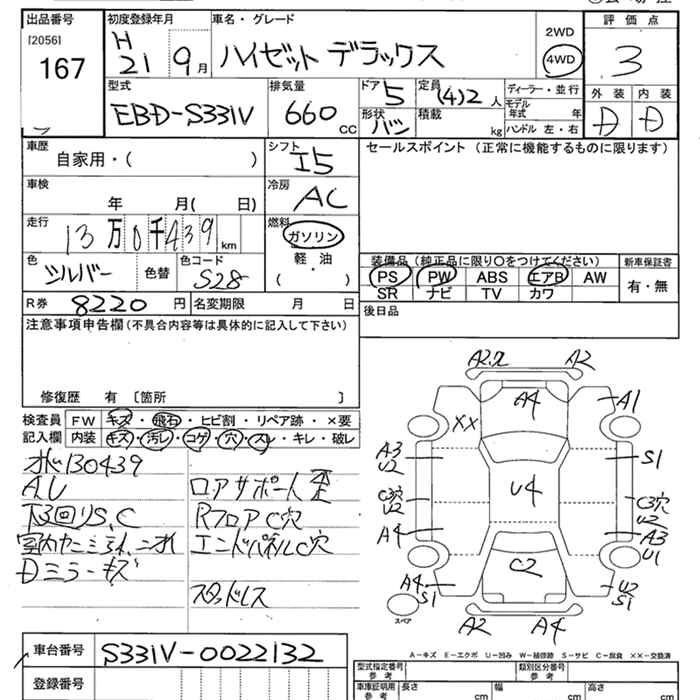 出品番号
[2056]
167
初度登録年月
H
21 9月
車名・グレード
ハイゼット デラックス
2WD
4WD
評価点
3
外装 内装
D D
型式
EBD-S331V
排気量
660 CC
ドア
5
形状
バン
定員
(4)2 人
積載
kg
ディーラー・並行
モデル年式 年
ハンドル 左・右
車歴
自家用・( )
シフト
I5
セールスポイント (正常に機能するものに限ります)
車検
年 月( 日)
冷房
AC
走行
13万0千439 km
燃料
ガソリン
軽油
( ・ )
色
シルバー
色替
色コード
S28
装備品 (純正品に限り○をつけてください)
PS PW ABS エアB AW
SR ナビ TV カワ
新車保証書
有・無
R券 8220 円
名変期限 月 日
後日品
注意事項申告欄 (不具合内容等は具体的に記入して下さい)
修復歴 有 〔箇所 〕
検査員記入欄
FW キズ・飛石・ヒビ割・リペア跡・×要
内装 キズ・汚レ・コゲ・穴・スレ・キレ・破レ
130439
A.U
下回りS、C
Dミラーキズ
ロアサポート
RフロアC穴
エンドパネルC穴
スタッドレス
A2 A2
A4 A1
XX
A3 U2
S1
C3穴 U2
U4
C3穴 U2
A4
A3 U1
C2
A4 S1
U2 S1
スペア
A2 A4
A-キズ E-エクボ U-凹み W-補修跡 S-サビ C-腐食 XX-交換済
車台番号
S331V-0022132
登録番号
型式指定番号 参考
類別区分番号 参考
車庫証明用 参考
長さ cm
幅 cm
高さ cm